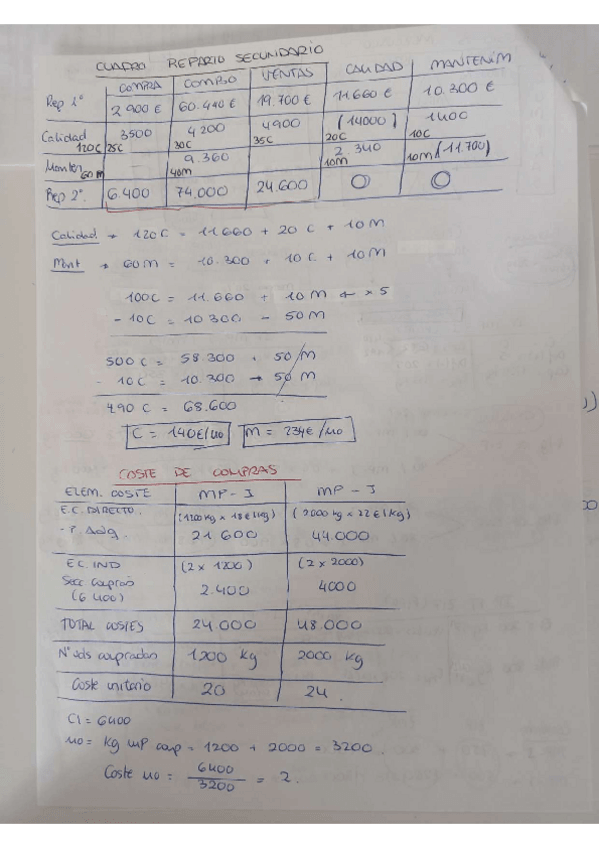 CUADRO REPARTO SECUNDARIO
COMPRA COMPSO VENTAS CALIDAD MANTENIM
Rep 1º 2 900 € 60.440 € 19.700 € 11.660 € 10.300 €
Calidad 3500 4200 4900 (14000) 1400
120C 25C 30C 35C 20C 10C
Manten 9.360 2 340 (11.700)
60M 40M 10M 10M
Rep 2º. 6.400 74.000 24.600 0 0
Calidad → 120 C = 11.660 + 20 C + 10 M
Mant → 60 M = 10.300 + 10 C + 10 M
100C = 11.660 + 10 M ← x 5
- 10C = 10 300 - 50 M
500 C = 58 300 + 50 M
- 10C = 10.300 → 50 M
490 C = 68.600
C = 140€/uo M = 234€/uo
COSTE DE COMPRAS
ELEM. COSTE MP - I MP - J
E.C. DIRECTO. (1200 kg x 18€/kg) (2000 kg x 22€/kg)
- P. Adq. 21 600 44.000
E.C. IND (2 x 1200) (2 x 2000)
Secc compras 2.400 4000
(6 400)
TOTAL COSTES 24 000 48.000
Nº uds compradas 1200 kg 2000 kg
Coste unitario 20 24.
CI = 6400
uo = kg MP comp = 1200 + 2000 = 3200.
Coste uo = 6400 / 3200 = 2.